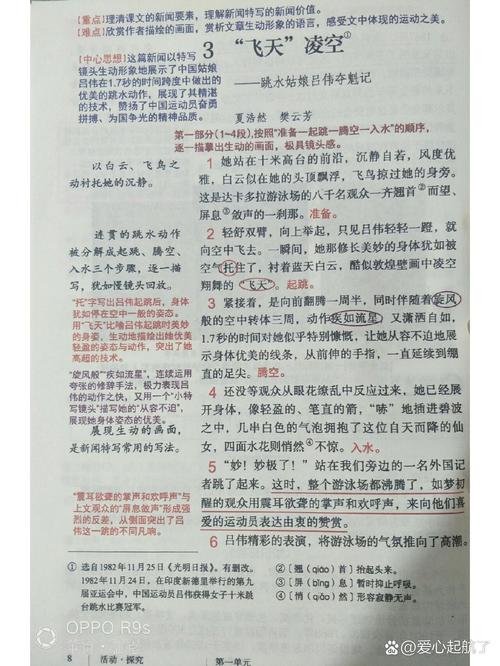 [重点]理清课文的新闻要素，理解新闻特写的新闻价值。
[难点]欣赏作者描绘的画面，赏析文章生动形象的语言，感受文中体现的运动之美。
[中心思想]这篇新闻以特写
镜头生动形象地展示了中国姑娘
吕伟在1.7秒的时间跨度中做出的
优美的跳水动作，展现了其精湛
的技术，赞扬了中国运动员奋勇
拼搏、为国争光的精神品质。
3 “飞天”凌空①
——跳水姑娘吕伟夺魁记
夏浩然 樊云芳
第一部分（1~4段），按照“准备—起跳—腾空—入水”的顺序，
逐一描摹出生动的画面，极具镜头感。
以白云、飞鸟之
动衬托她的沉静。
1 她站在十米高台的前沿，沉静自若，风度优
雅，白云似在她的头顶飘浮，飞鸟掠过她的身旁。
这是达卡多拉游泳场的八千名观众一齐翘首②而望、
屏息③敛声的一刹那。准备。
连贯的跳水动作
被分解成起跳、腾空、
入水三个步骤，逐一描
写，犹如慢镜头回放。
2 轻舒双臂，向上举起，只见吕伟轻轻一蹬，就
向空中飞去。一瞬间，她那修长美妙的身体犹如被
空气托住了，衬着蓝天白云，酷似敦煌壁画中凌空
翔舞的“飞天”。起跳。
“托”字写出吕伟起跳后，身体
犹如停在空中一般的姿态。
用“飞天”比喻吕伟起跳时美妙
的身姿，生动地描绘出她优美
轻盈的姿态与动作，突出了她
高超的技术。
3 紧接着，是向前翻腾一周半，同时伴随着旋风
般的空中转体三周，动作疾如流星，又潇洒自如，
1.7秒的时间对她似乎特别慷慨，让她从容不迫地展
示身体优美的线条，从前伸的手指，一直延续到绷
直的足尖。腾空。
“旋风般”“疾如流星”，连续运用
夸张的修辞手法，极力表现吕
伟的动作之快，又用一个“小特
写镜头”描写她的“从容不迫”，
展现她身体姿态的优美。
展现生动的画面，
是新闻特写常用的写法。
4 还没等观众从眼花缭乱中反应过来，她已经展
开身体，像轻盈的、笔直的箭，“哧”地插进碧波
之中，几串白色的气泡拥抱了这位自天而降的仙
女，四面水花则悄然④不惊。入水。
5 “妙！妙极了！”站在我们旁边的一名外国记
者跳了起来。这时，整个游泳场都沸腾了，如梦初
醒的观众用震耳欲聋的掌声和欢呼声，来向他们喜
爱的运动员表达由衷的赞赏。
“震耳欲聋的掌声和欢呼声”与
上文观众的“屏息敛声”形成强
烈的反差，从侧面突出了吕
伟这一跳的不同凡响。
6 吕伟精彩的表演，将游泳场的气氛推向了高潮。
① 选自1982年11月25日《光明日报》。有删改。
1982年11月24日，在印度新德里举行的第九
届亚运会中，中国运动员吕伟获得女子十米跳
台跳水比赛冠军。
②〔翘（qiáo）首〕抬起头来。
③〔屏（bǐng）息〕暂时抑止呼吸。
④〔悄（qiǎo）然〕形容寂静无声。
8 活动·探究 第一单元
OPPO R9s
@爱心起航了